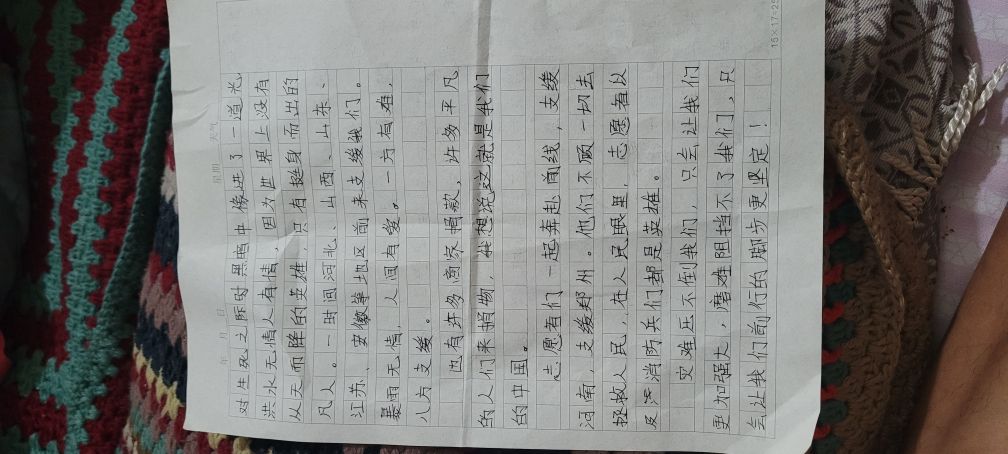 年 月 日 星期 天气
对生死之际时黑暗中像进了一道光
洪水无情人有情，因为世界上没有
从天而降的英雄，只有挺身而出的
凡人。一时间河北、山西、山东、
江苏、安徽等地区前来支援我们。
暴雨无情，人间有爱。一方有难，
八方支援。
也有许多商家捐款，许多平凡
的人们来捐物，我想说这就是我们
的中国。
志愿者们一起奔赴前线，支援
河南，支援郑州。他们不顾一切去
拯救人民，在人民眼里，志愿者以
及消防兵们都是英雄。
灾难压不倒我们，只会让我们
更加强大，磨难阻挡不了我们，只
会让我们前行的脚步更坚定！
16×17=25